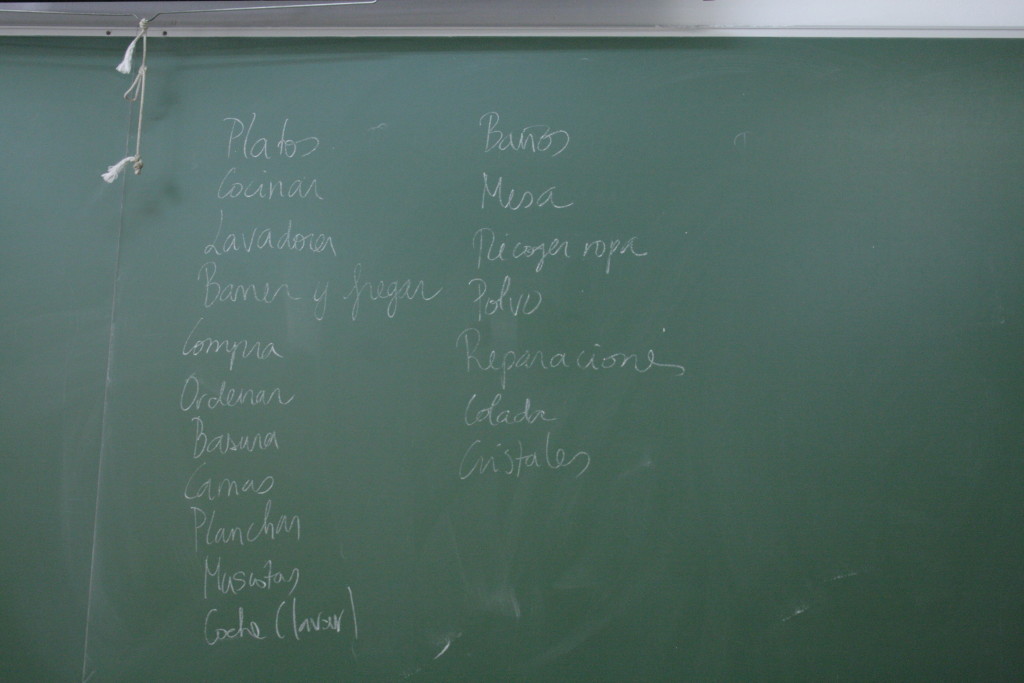 Platos
Cocinar
Lavadora
Barrer y fregar
Compra
Ordenar
Basura
Camas
Planchar
Mascotas
Coche (lavar)
Baños
Mesa
Recoger ropa
Polvo
Reparaciones
Colada
Cristales